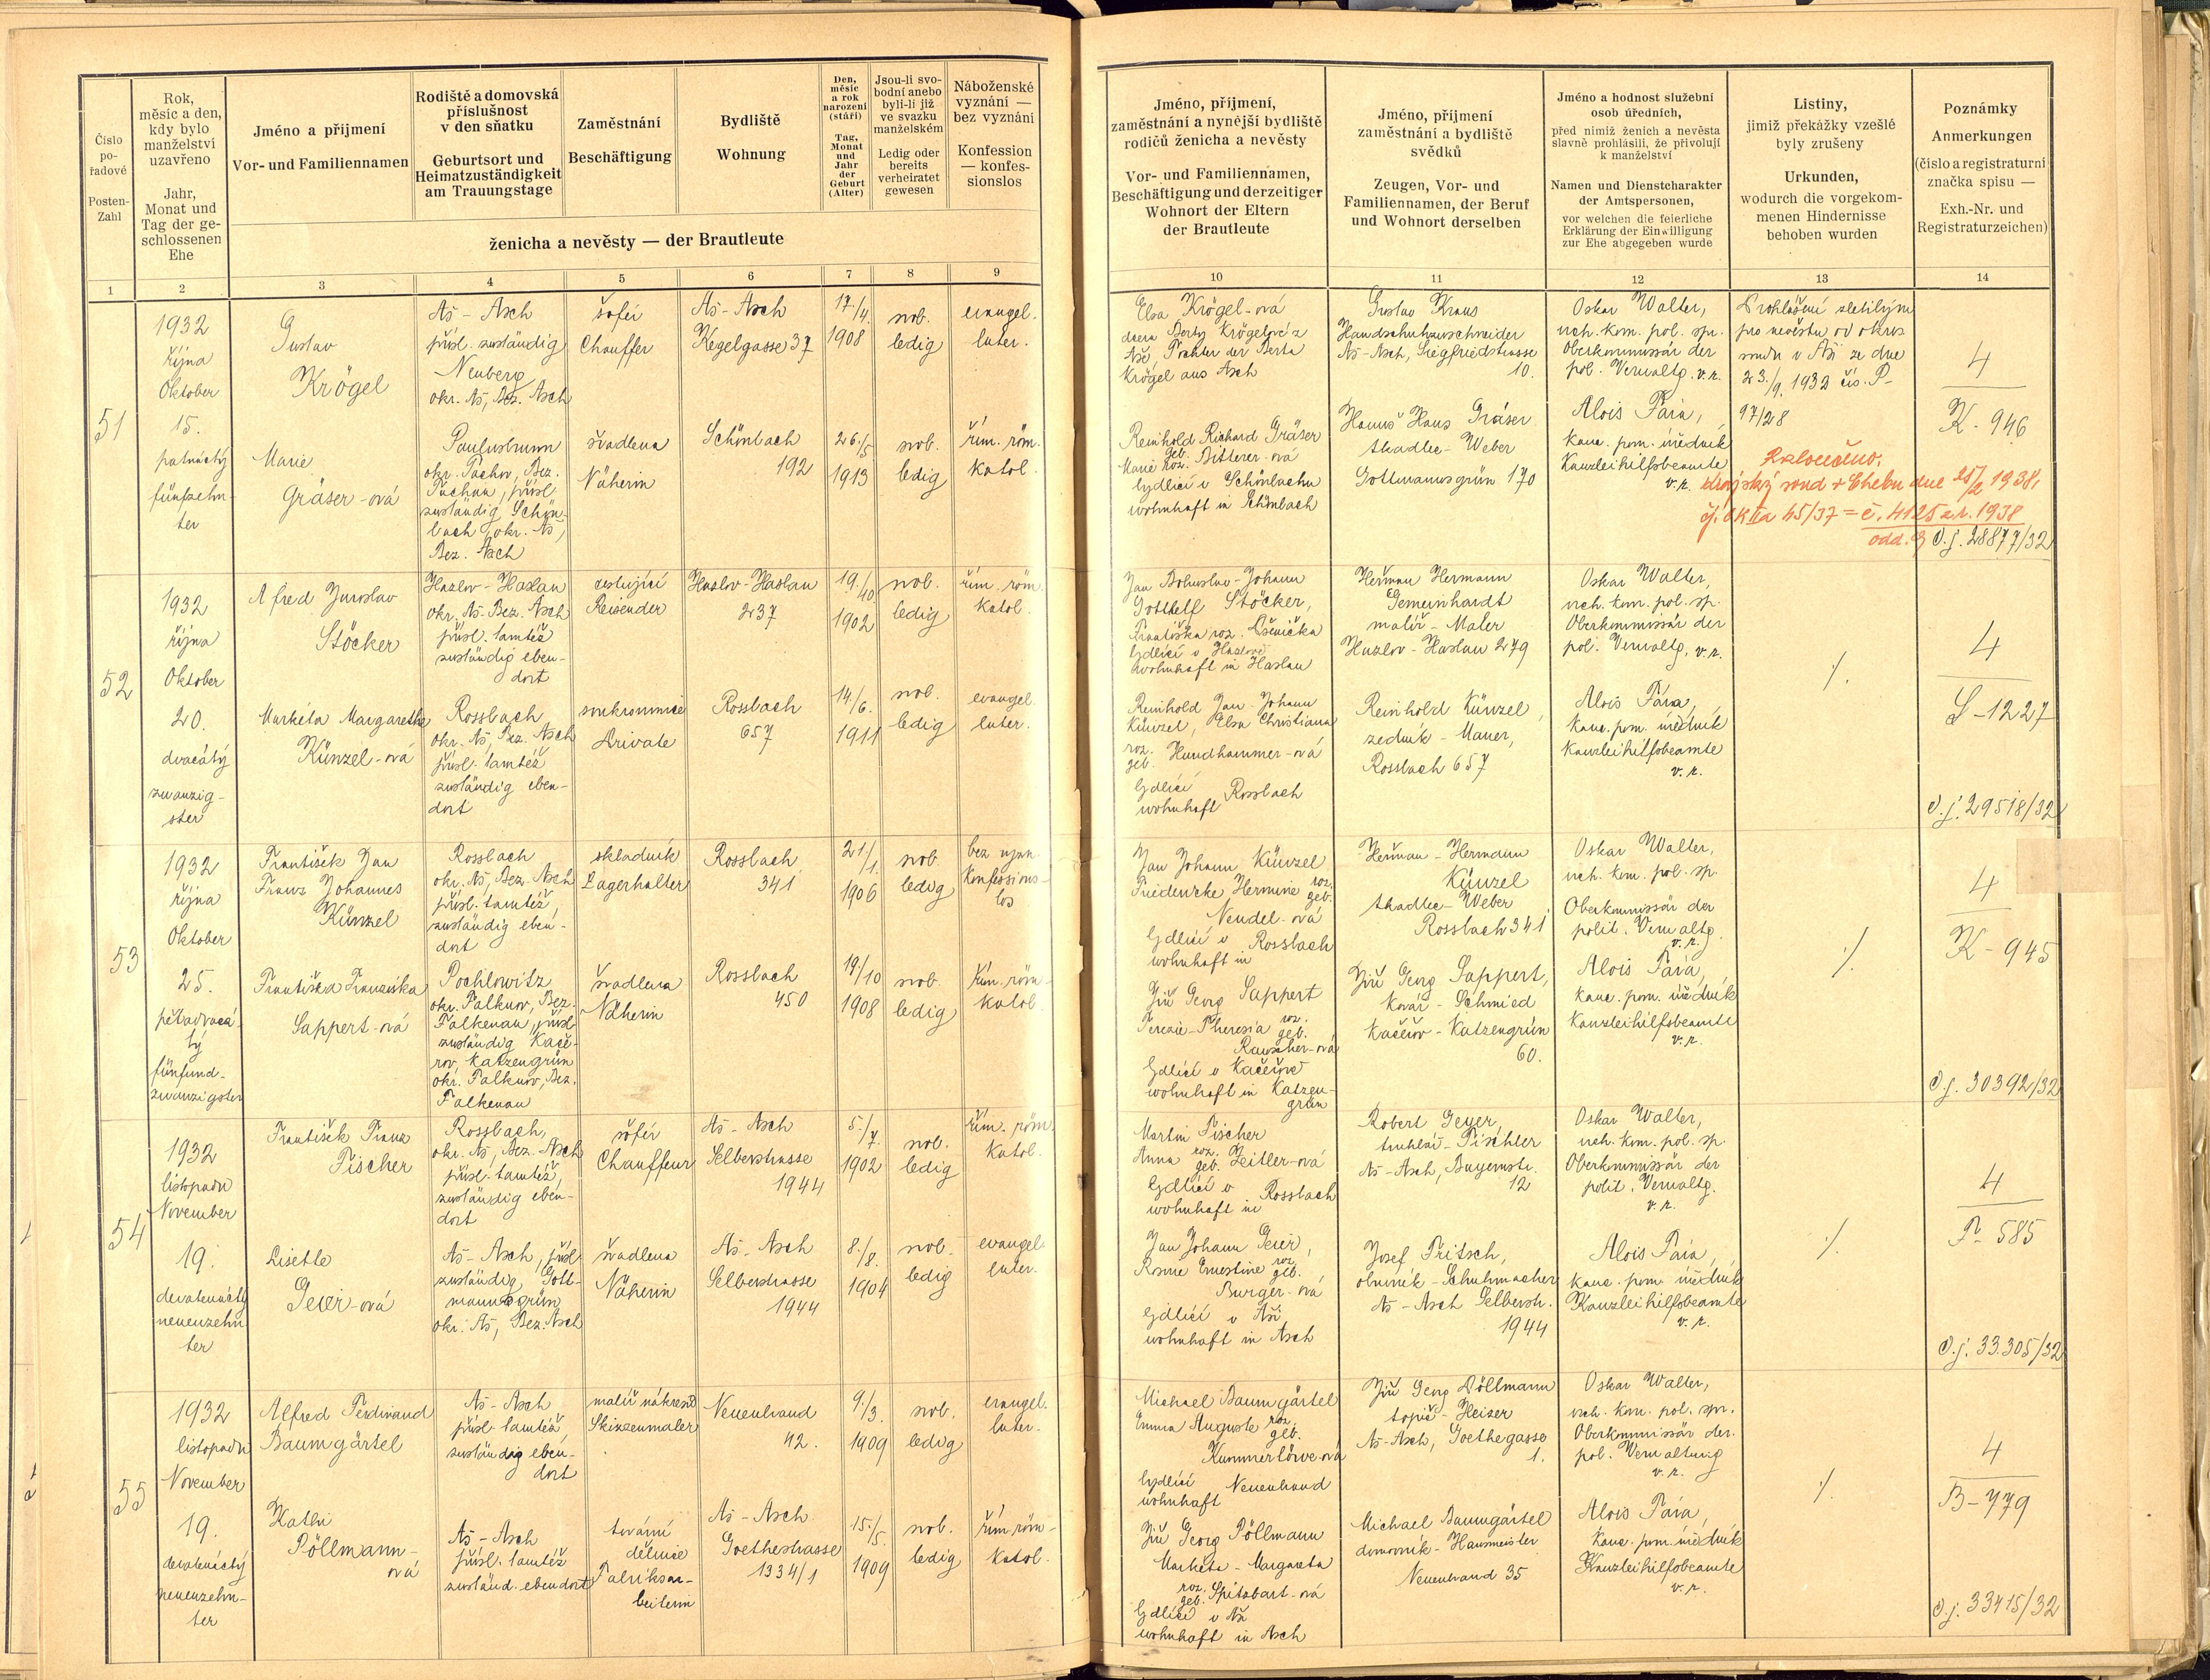 Číslo
po-
řadové
Posten-
Zahl
Rok,
měsíc a den,
kdy bylo
manželství
uzavřeno
Jahr,
Monat und
Tag der ge-
schlossenen
Ehe
Jméno a příjmení
Vor- und Familiennamen
Rodiště a domovská
příslušnost
v den sňatku
Geburtsort und
Heimatzuständigkeit
am Trauungstage
Zaměstnání
Beschäftigung
Bydliště
Wohnung
Den,
měsíc
a rok
narození
(stáří)
Tag,
Monat
und
Jahr
der
Geburt
(Alter)
Jsou-li svo-
bodni anebo
byli-li již
ve svazku
manželském
Ledig oder
bereits
verheiratet
gewesen
Náboženské
vyznání —
bez vyznání
Konfession
— konfes-
sionslos
ženicha a nevěsty — der Brautleute
1 2 3 4 5 6 7 8 9
Jméno, příjmení,
zaměstnání a nynější bydliště
rodičů ženicha a nevěsty
Vor- und Familiennamen,
Beschäftigung und derzeitiger
Wohnort der Eltern
der Brautleute
Jméno, příjmení
zaměstnání a bydliště
svědků
Zeugen, Vor- und
Familiennamen, der Beruf
und Wohnort derselben
Jméno a hodnost služební
osob úředních,
před nimiž ženich a nevěsta
slavně prohlásili, že přivolují
k manželství
Namen und Dienstcharakter
der Amtspersonen,
vor welchen die feierliche
Erklärung der Einwilligung
zur Ehe abgegeben wurde
Listiny,
jimiž překážky vzešlé
byly zrušeny
Urkunden,
wodurch die vorgekom-
menen Hindernisse
behoben wurden
Poznámky
Anmerkungen
(číslo a registraturní
značka spisu —
Exh.-Nr. und
Registraturzeichen)
10 11 12 13 14
51
1932
října
Oktober
15.
patnáctý
fünfzehn-
ter
Gustav
Krögel
Aš - Asch
přísl. zuständig
Neuberg
okr. Aš, Bez. Asch
šofér
Chauffer
Aš - Asch
Kegelgasse 37
17./4.
1908
svob.
ledig
evangel.
luter.
Marie
Gräser-ová
Paulusbrunn
okr. Tachov, Bez.
Tachau, přísl.
zuständig Schön-
bach okr. Aš,
Bez. Asch
švadlena
Näherin
Schönbach
192
26./5
1913
svob.
ledig
řím. röm.
katol.
Elsa Krögel-ová
dcera Berty Krögelové z
Aše, Tochter der Berta
Krögel aus Asch
Reinhold Richard Gräser
Marie roz. geb. Bitterer-ová
bydlící v Schönbachu
wohnhaft in Schönbach
Gustav Kraus
Handschuhzuschneider
Aš-Asch, Siegfriedstrasse
10.
Hanuš Hans Gräser
tkadlec - Weber
Gottmannsgrün 170
Oskar Walter,
vrch. kom. pol. spr.
Oberkommissär der
pol. Verwaltg. v.r.
Alois Pára,
kanc. pom. úředník
Kanzleihilfsbeamte
v.r.
Prohlášení zletilým
pro nevěstu od okres
soudu v Aši ze dne
23./9. 1932 čís. P-
97/28
Rozloučeno.
krajský soud v Chebu dne 25/2 1938,
čj. Ck IIa 45/37 = č. 4125 z r. 1938
4
K - 946
č.j. 28877/32
52
1932
října
Oktober
20.
dvacátý
zwanzig-
ster
Alfred Jaroslav
Stöcker
Hazlov - Haslau
okr. Aš - Bez. Asch
přísl. tamtéž
zuständig eben-
dort
cestující
Reisender
Hazlov - Haslau
237
19./10
1902
svob.
ledig
řím. röm.
katol.
Markéta Margarethe
Künzel-ová
Rossbach
okr. Aš, Bez. Asch
přísl. tamtéž
zuständig eben-
dort
soukromnice
Private
Rossbach
657
14/6.
1911
svob.
ledig
evangel.
luter.
Jan Bohuslav - Johann
Gotthelf Stöcker,
Františka roz. Pšenička
bydlící v Hazlově
wohnhaft in Haslau
Reinhold Jan - Johann
Künzel, Elsa Christiana
roz. geb. Hundhammer-ová
bydlící
wohnhaft Rossbach
Heřman Hermann
Gemeinhardt
malíř - Maler
Hazlov - Haslau 279
Reinhold Künzel,
zedník - Maurer,
Rossbach 657
Oskar Walter,
vrch. kom. pol. sp.
Oberkommissär der
pol. Verwaltg. v.r.
Alois Pára,
kanc. pom. úředník
Kanzleihilfsbeamte
v.r.
./.
4
S - 1227
č.j. 29518/32
53
1932
října
Oktober
25.
pětadvacá-
tý
fünfund-
zwanzigster
František Jan
Franz Johannes
Künzel
Rossbach
okr. Aš, Bez. Asch
přísl. tamtéž,
zuständig eben-
dort
skladník
Lagerhalter
Rossbach
341
21./1.
1906
svob.
ledig
bez vyzn.
Konfessions-
los
Františka Franziska
Sappert-ová
Pochlowitz
okr. Falknov, Bez.
Falkenau, přísl.
zuständig Kače-
rov, Katzengrün
okr. Falknov, Bez.
Falkenau
švadlena
Näherin
Rossbach
450
19/10
1908
svob.
ledig
řím. röm.
katol.
Jan Johann Künzel
Friedericke Hermine roz. geb.
Neudel-ová
bydlící v Rossbach
wohnhaft in
Jiří Georg Sappert
Terezie-Theresia roz. geb.
Rauscher-ová
bydlící v Kačeřově
wohnhaft in Katzen-
grün
Heřman - Hermann
Künzel
tkadlec - Weber
Rossbach 341
Jiří Georg Sappert,
kovář - Schmied
Kačeřov - Katzengrün
60.
Oskar Walter,
vrch. kom. pol. sp.
Oberkommissär der
polit. Verwaltg.
v.r.
Alois Pára,
kanc. pom. úředník
Kanzleihilfsbeamte
v.r.
./.
4
K - 945
č.j. 30392/32
54
1932
listopadu
November
19.
devatenáctý
neunzehn
ter
František Franz
Fischer
Rossbach,
okr. Aš, Bez. Asch
přísl. tamtéž,
zuständig eben-
dort
šofér
Chauffeur
Aš - Asch
Selberstrasse
1944
5./7.
1902
svob.
ledig
řím. röm.
katol.
Lisette
Geier-ová
Aš - Asch, přísl.
zuständig Gott-
mannsgrün
okr. Aš, Bez. Asch
švadlena
Näherin
Aš - Asch
Selberstrasse
1944
8./8.
1904
svob.
ledig
evangel.
luter.
Martin Fischer
Anna roz. geb. Zeitler-ová
bydlící v Rossbach
wohnhaft in
Jan Johann Geier,
Rosine Ernestine roz. geb.
Burger-ová
bydlící v Aši
wohnhaft in Asch
Robert Geyer,
truhlář - Tischler
Aš - Asch, Bayernstr.
12
Josef Fritsch,
obuvník - Schuhmacher
Aš - Asch Selberstr.
1944
Oskar Walter,
vrch. kom. pol. sp.
Oberkommissär der
polit. Verwaltg.
v.r.
Alois Pára,
kanc. pom. úředník
Kanzleihilfsbeamte
v.r.
./.
4
F - 585
č.j. 33.305/32
55
1932
listopadu
November
19.
devatenáctý
neuenzehn-
ter
Alfred Ferdinand
Baumgärtel
Aš - Asch
přísl. tamtéž,
zuständig eben-
dort
malíř nákresů
Skizzenmaler
Neuenbrand
42.
9./3.
1909
svob.
ledig
evangel.
luter.
Kathi
Pöllmann-
ová
Aš - Asch
přísl. tamtéž
zuständ. ebendort
tovární
dělnice
Fabriksar-
beiterin
Aš - Asch
Goethestrasse
1334/1
15./5.
1909
svob.
ledig
řím. röm-
katol.
Michael Baumgärtel
Emma Auguste roz. geb.
Kummerlöwe-ová
bydlící
wohnhaft Neuenbrand
Jiří Georg Pöllmann
Markéta - Margareta
roz. geb. Spitzbart-ová
bydlící v Aši
wohnhaft in Asch
Jiří Georg Pöllmann
topič - Heizer
Aš - Asch, Goethegasse
1.
Michael Baumgärtel
domovník - Hausmeister
Neuenbrand 35
Oskar Walter,
vrch. kom. pol. spr.
Oberkommissär der
pol. Verwaltung
v.r.
Alois Pára,
kanc. pom. úředník
Kanzleihilfsbeamte
v.r.
./.
4
B - 779
č.j. 33415/32